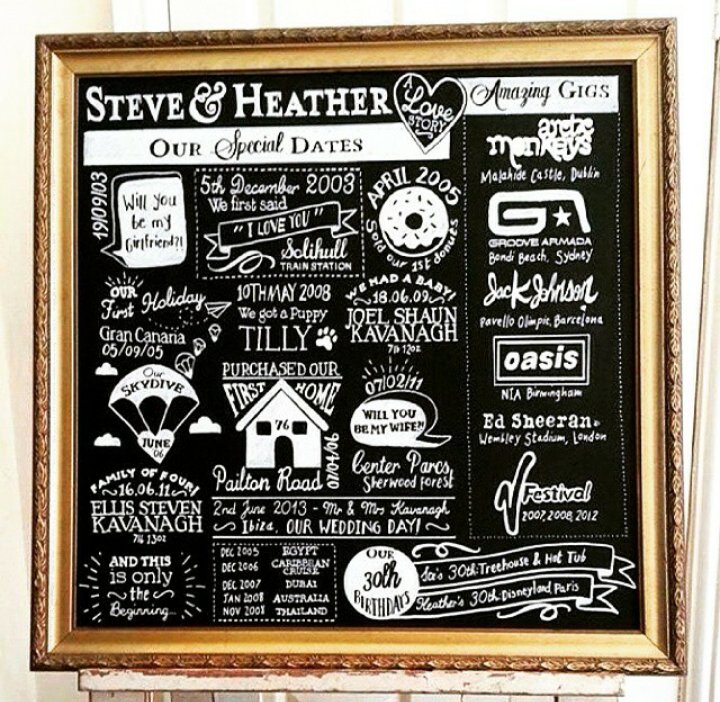 STEVE & HEATHER
A Love STORY
OUR Special DATES
19/09/03
Will you
be my
Girlfriend?!
5th December 2003
We first said
"I LOVE YOU"
Solihull
TRAIN STATION
APRIL 2005
Sold our 1st donuts
OUR
First Holiday
Gran Canaria
05/09/05
10TH MAY 2008
We got a Puppy
TILLY
WE HAD A BABY!
18.06.09
JOEL SHAUN
KAVANAGH
7lb 12oz
Our
SKYDIVE
JUNE
06
PURCHASED OUR
FIRST HOME
76
Pailton Road
07/02/11
WILL YOU
BE MY WIFE?!
Center Parcs,
Sherwood Forest
FAMILY OF FOUR!
16.06.11
ELLIS STEVEN
KAVANAGH
7lb 13oz
2nd June 2013 - Mr & Mrs Kavanagh
Ibiza, OUR WEDDING DAY!
AND THIS
is only
the
Beginning...
DEC 2005 EGYPT
DEC 2006 CARIBBEAN CRUISE
DEC 2007 DUBAI
JAN 2008 AUSTRALIA
NOV 2008 THAILAND
OUR
30th
BIRTHDAYS
30th: Treehouse & Hot Tub
Heather's 30th: Disneyland, Paris
Amazing GIGS
arctic
monkeys
Malahide Castle, Dublin
GA
GROOVE ARMADA
Bondi Beach, Sydney
Jack Johnson
Pavello Olimpic, Barcelona
oasis
NIA Birmingham
Ed Sheeran
Wembley Stadium, London
V Festival
2007, 2008, 2012